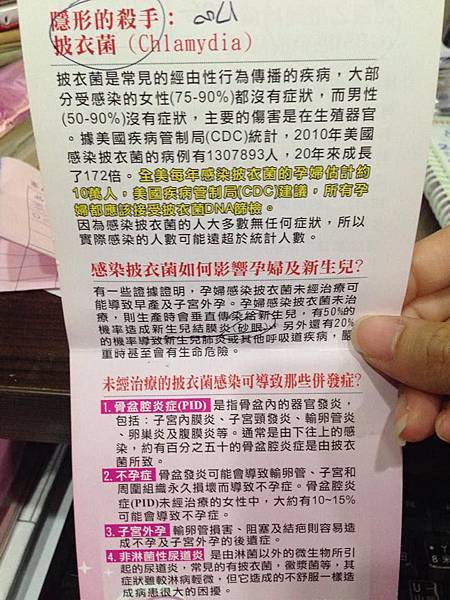 隱形的殺手：
披衣菌（Chlamydia）
披衣菌是常見的經由性行為傳播的疾病，大部
分受感染的女性(75-90%)都沒有症狀，而男性
(50-90%)沒有症狀，主要的傷害是在生殖器官
。據美國疾病管制局(CDC)統計，2010年美國
感染披衣菌的病例有1307893人，20年來成長
了172倍。全美每年感染披衣菌的孕婦估計約
10萬人，美國疾病管制局(CDC)建議，所有孕
婦都應該接受披衣菌DNA篩檢。
因為感染披衣菌的人大多數無任何症狀，所以
實際感染的人數可能遠超於統計人數。
感染披衣菌如何影響孕婦及新生兒?
有一些證據證明，孕婦感染披衣菌未經治療可
能導致早產及子宮外孕。孕婦感染披衣菌未治
療，則生產時會垂直傳染給新生兒，有50%的
機率造成新生兒結膜炎(砂眼)，另外還有20%
的機率導致新生兒肺炎或其他呼吸道疾病，嚴
重時甚至會有生命危險。
未經治療的披衣菌感染可導致那些併發症?
1.骨盆腔炎症(PID) 是指骨盆內的器官發炎，
包括：子宮內膜炎、子宮頸發炎、輸卵管炎
、卵巢炎及腹膜炎等。通常是由下往上的感
染，約有百分之五十的骨盆腔炎症是由披衣
菌所致。
2.不孕症 骨盆發炎可能會導致輸卵管、子宮和
周圍組織永久損壞而導致不孕症。骨盆腔炎
症(PID)未經治療的女性中，大約有10~15%
可能會導致不孕症。
3.子宮外孕 輸卵管損害、阻塞及結疤則容易造
成不孕及子宮外孕的後遺症。
4.非淋菌性尿道炎 是由淋菌以外的微生物所引
起的尿道炎，常見的有披衣菌，黴漿菌等，其
症狀雖較淋病輕微，但它造成的不舒服一樣造
成病患很大的困擾。